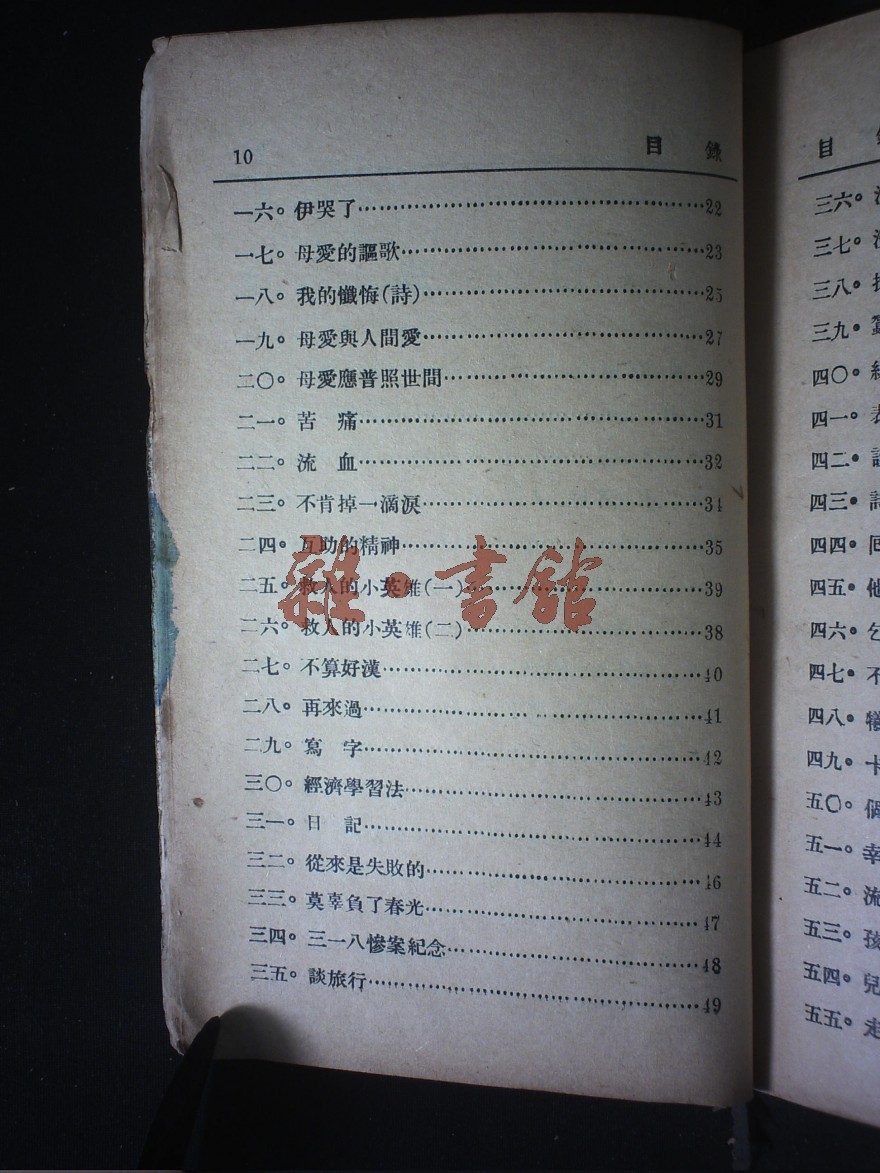 10 目錄
一六。伊哭了……22
一七。母愛的謳歌……23
一八。我的懺悔(詩)……25
一九。母愛與人間愛……27
二〇。母愛應普照世間……29
二一。苦 痛……31
二二。流 血……32
二三。不肯掉一滴淚……34
二四。互助的精神……35
二五。救人的小英雄(一)……39
二六。救人的小英雄(二)……38
二七。不算好漢……40
二八。再來過……41
二九。寫 字……42
三〇。經濟學習法……43
三一。日 記……44
三二。從來是失敗的……46
三三。莫辜負了春光……47
三四。三一八慘案紀念……48
三五。談旅行……49
雜·書館
目
三六。
三七。
三八。
三九。
四〇。
四一。
四二。
四三。
四四。
四五。他
四六。乞
四七。不
四八。
四九。卡
五〇。個
五一。幸
五二。流
五三。孩
五四。兒
五五。走